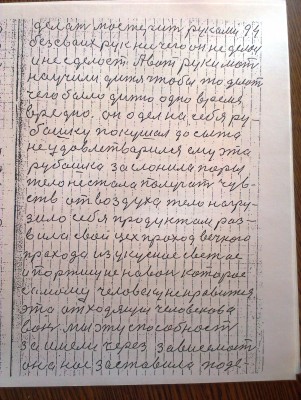 делат мостерит руками 94
без своих рук ничего он не делал
и не сделост. А вот руки мат
научили дитя чтобы то делат
чего было дитю одно время
вредно. он одел на себя ру-
башку покушал до сыта
не удовлетварился ему эта
рубашка заслонила пори
тело нестала получат чув-
ств от воздуха тело нагру-
зило себя продуктам раз-
вила свой цех проход вечного
прахода из укусное светлое
и портющие навоз которое
самому человеку ненравится
это отходящие человекова
вон. ми эту способност
заимели через зависемост
она нас заставила подв-